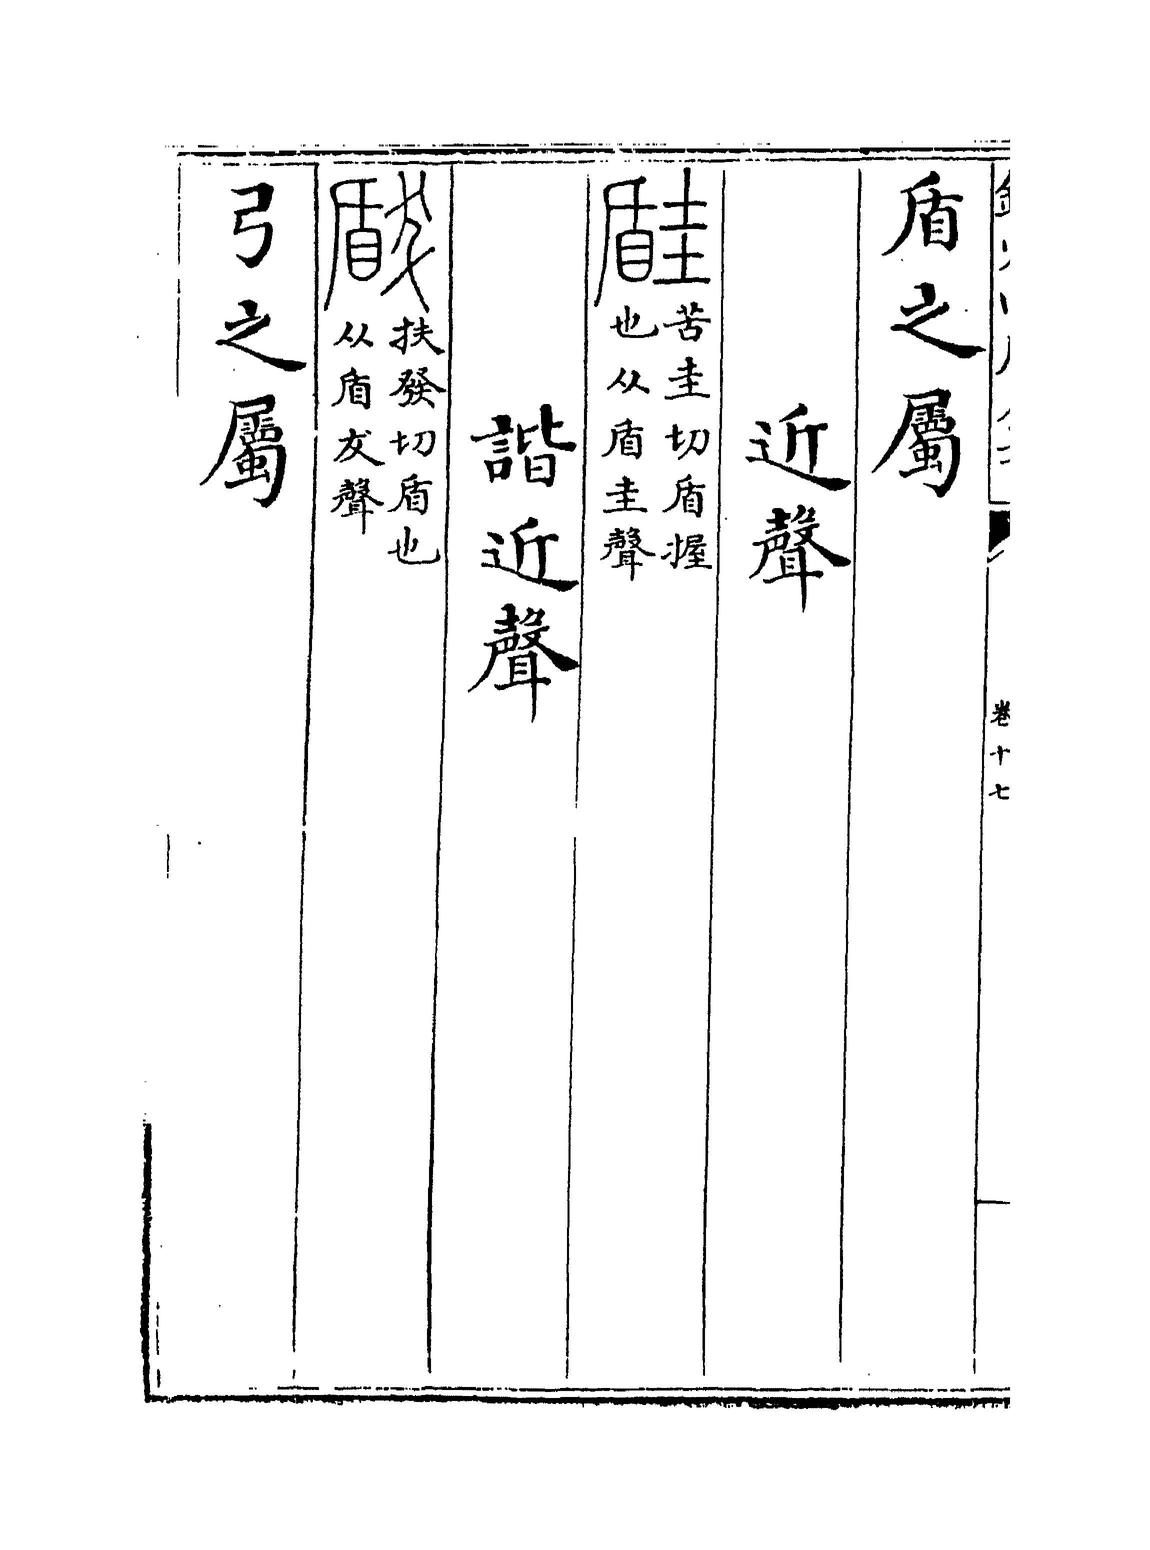 卷十七
盾之屬
近聲
𥎀苦圭切盾握
也从盾圭聲
諧近聲
瞂扶發切盾也
从盾犮聲
弓之屬